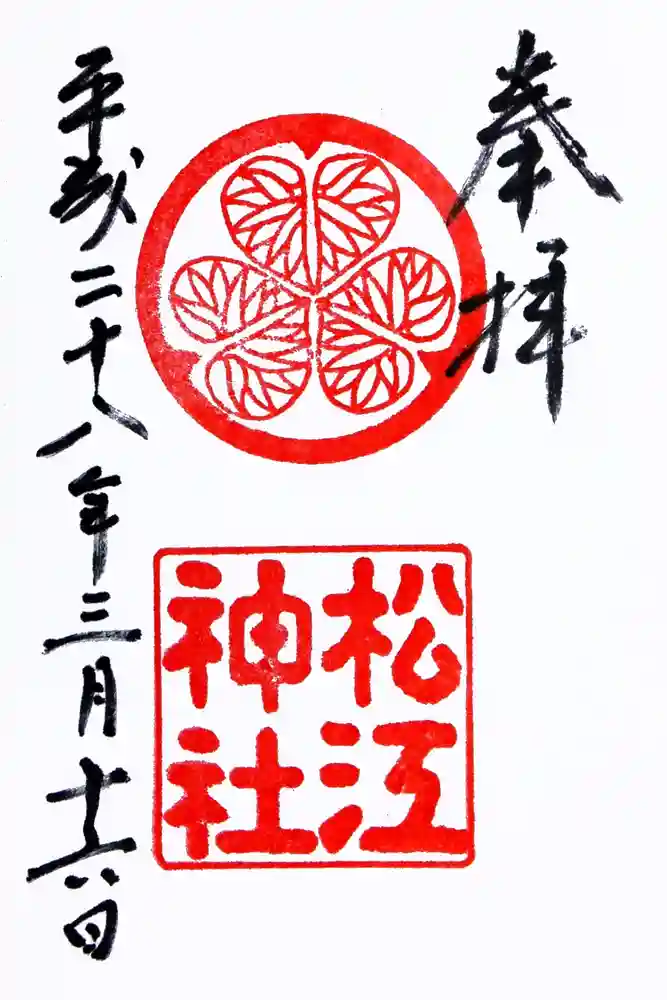 奉拝
松江
神社
平成二十八年三月十六日